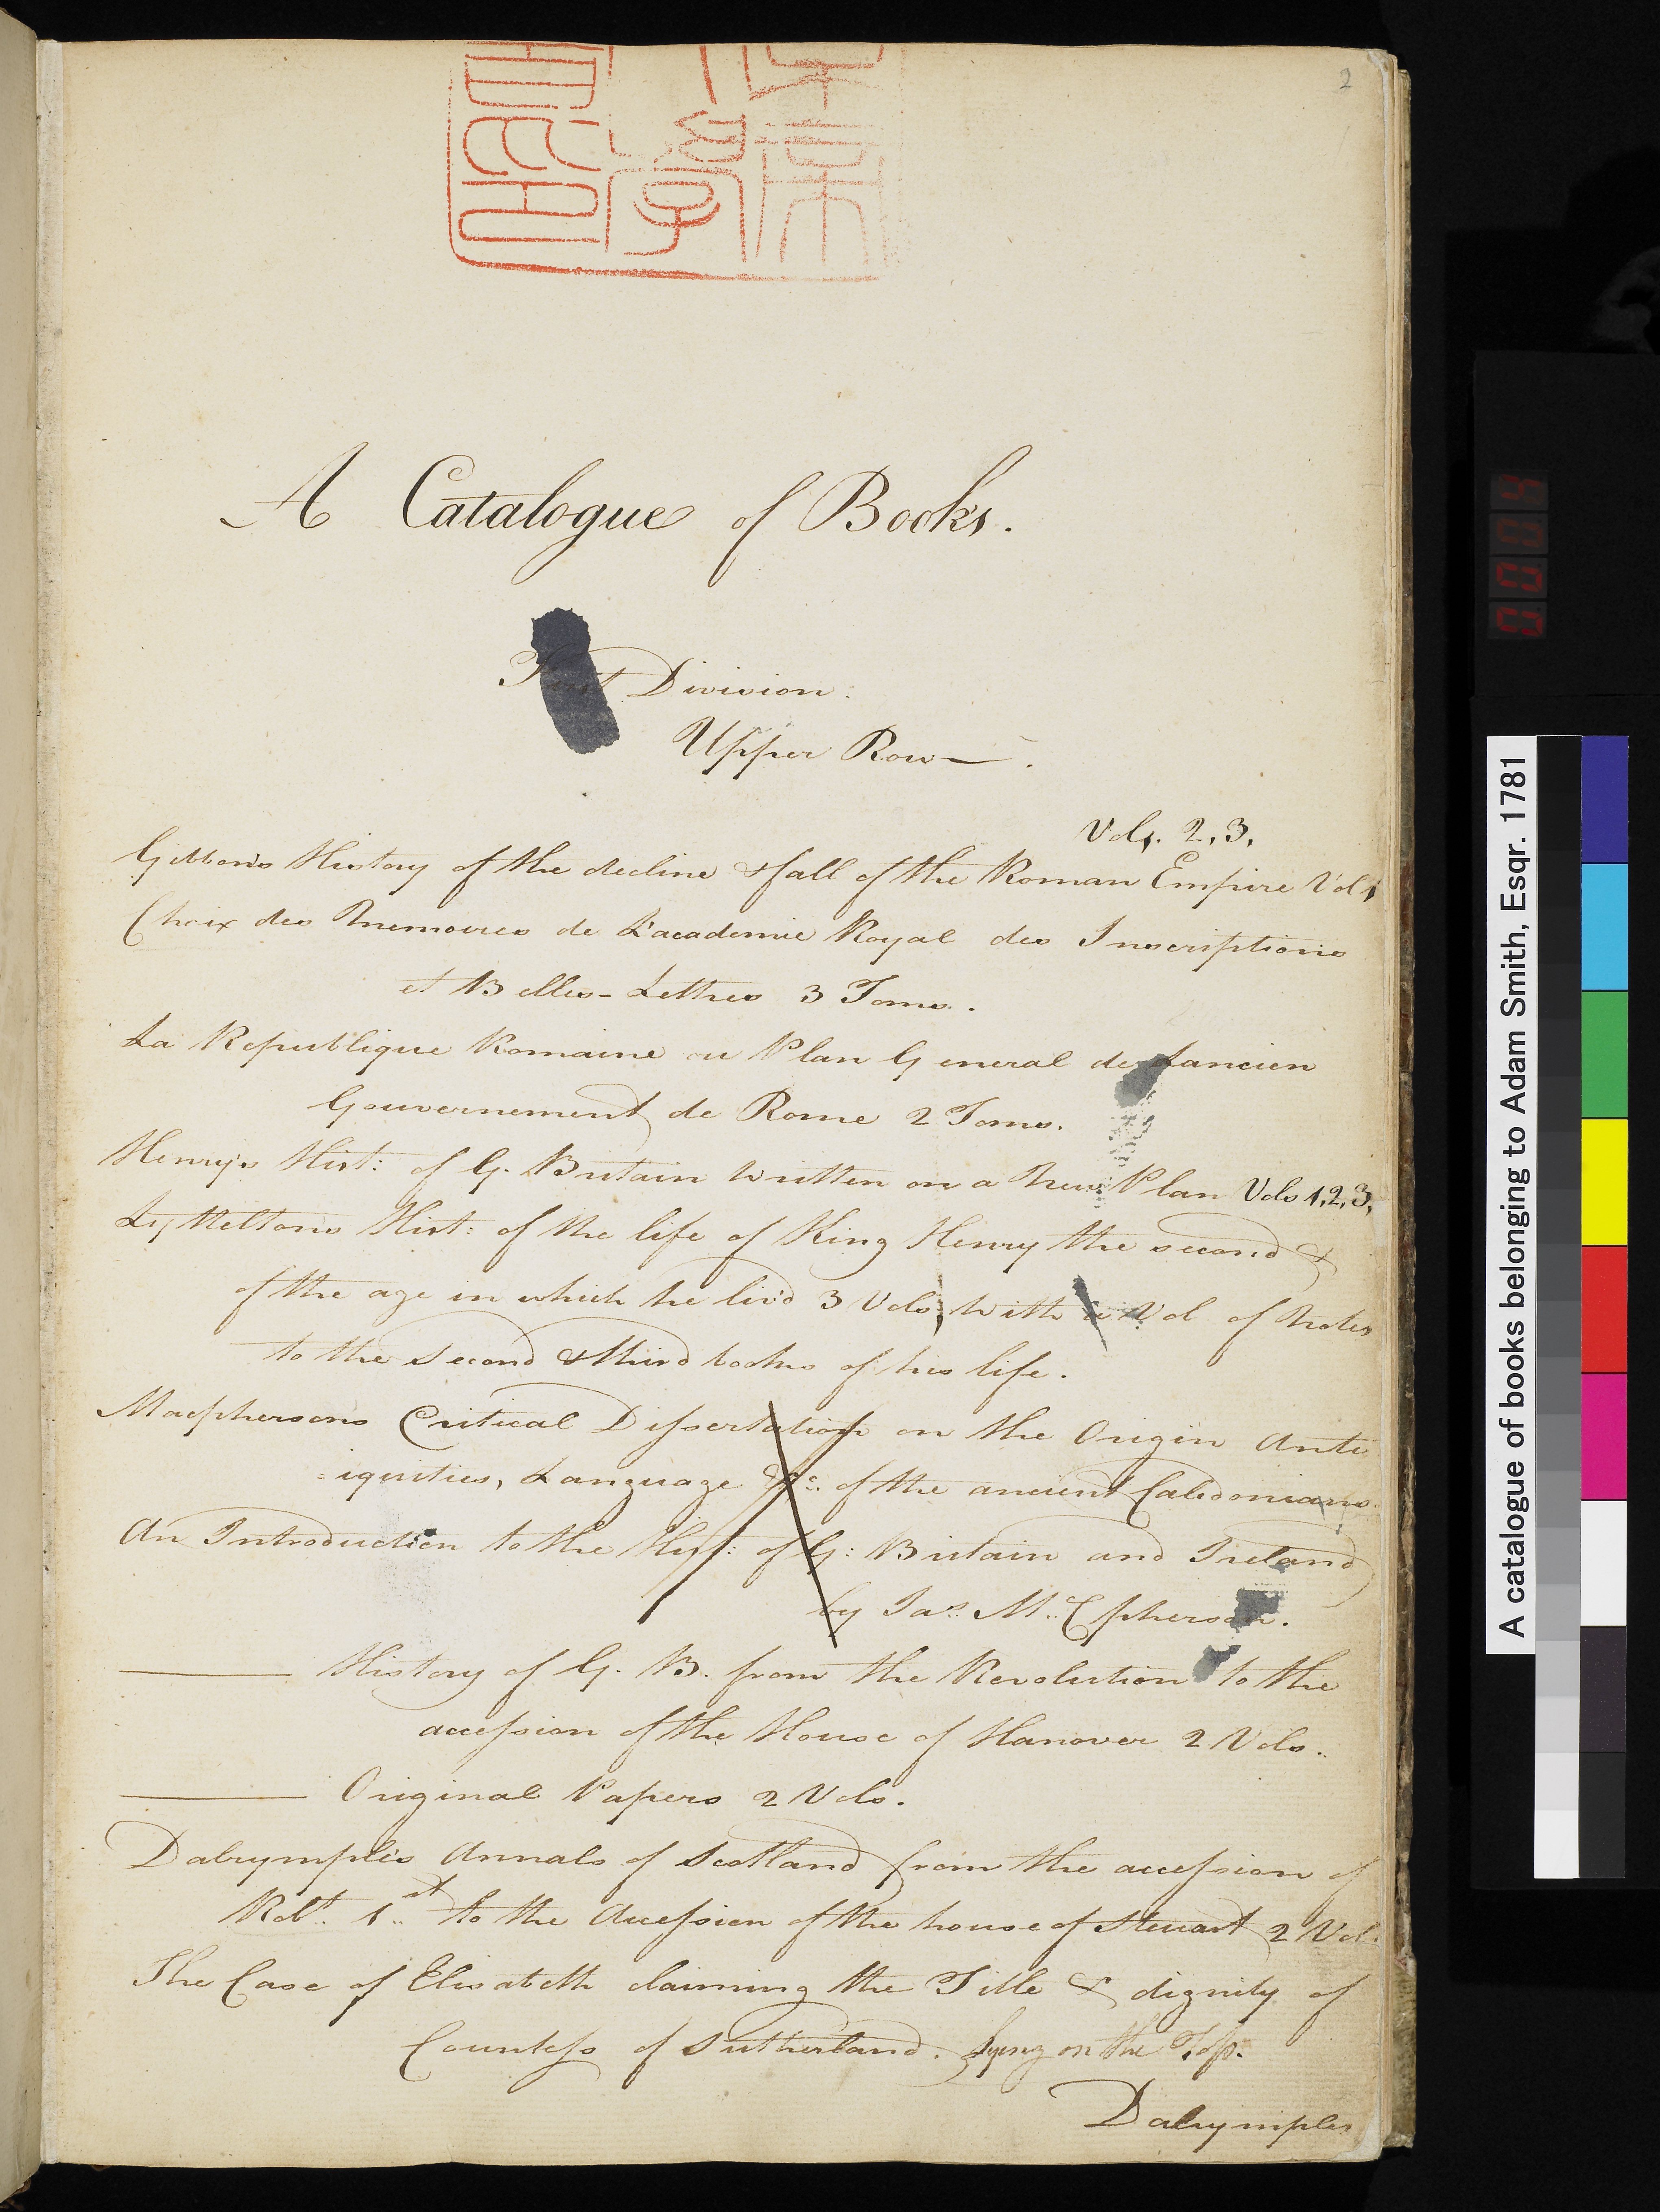 2
A Catalogue of Books.
First Division.
Upper Row —.
Vols. 2, 3,
Gibbon's History of the decline & fall of the Roman Empire Vol 1
Choix des Memoires de L'academie Royal des Inscriptions
et Belles-Lettres 3 Toms.
La Republique Romaine ou Plan General de Lancien
Gouvernement de Rome 2 Toms.
Henry's Hist: of G. Britain written on a New Plan Vols 1,2,3,
Lytteltons Hist: of the life of King Henry the second &
of the age in which he liv'd 3 Vols, with a Vol of Notes
to the second & third books of his life.
Macphersons Critical Dissertation on the Origin Anti
=iquities, Language &c: of the ancient Caledonians.
An Introduction to the Hist: of G: Britain and Ireland
by Jas. Mc.Cpherson.
——— History of G. B. from the Revolution to the
accession of the House of Hanover 2 Vols.
——— Original Papers 2 Vols.
Dalrymple's Annals of Scotland from the accession of
Robt. 1st to the Accession of the house of Stewart 2 Vol.
The Case of Elisabeth claiming the Title & dignity of
Countess of Sutherland. Lying on the Top.
Dalrymples
A catalogue of books belonging to Adam Smith, Esqr. 1781
0004